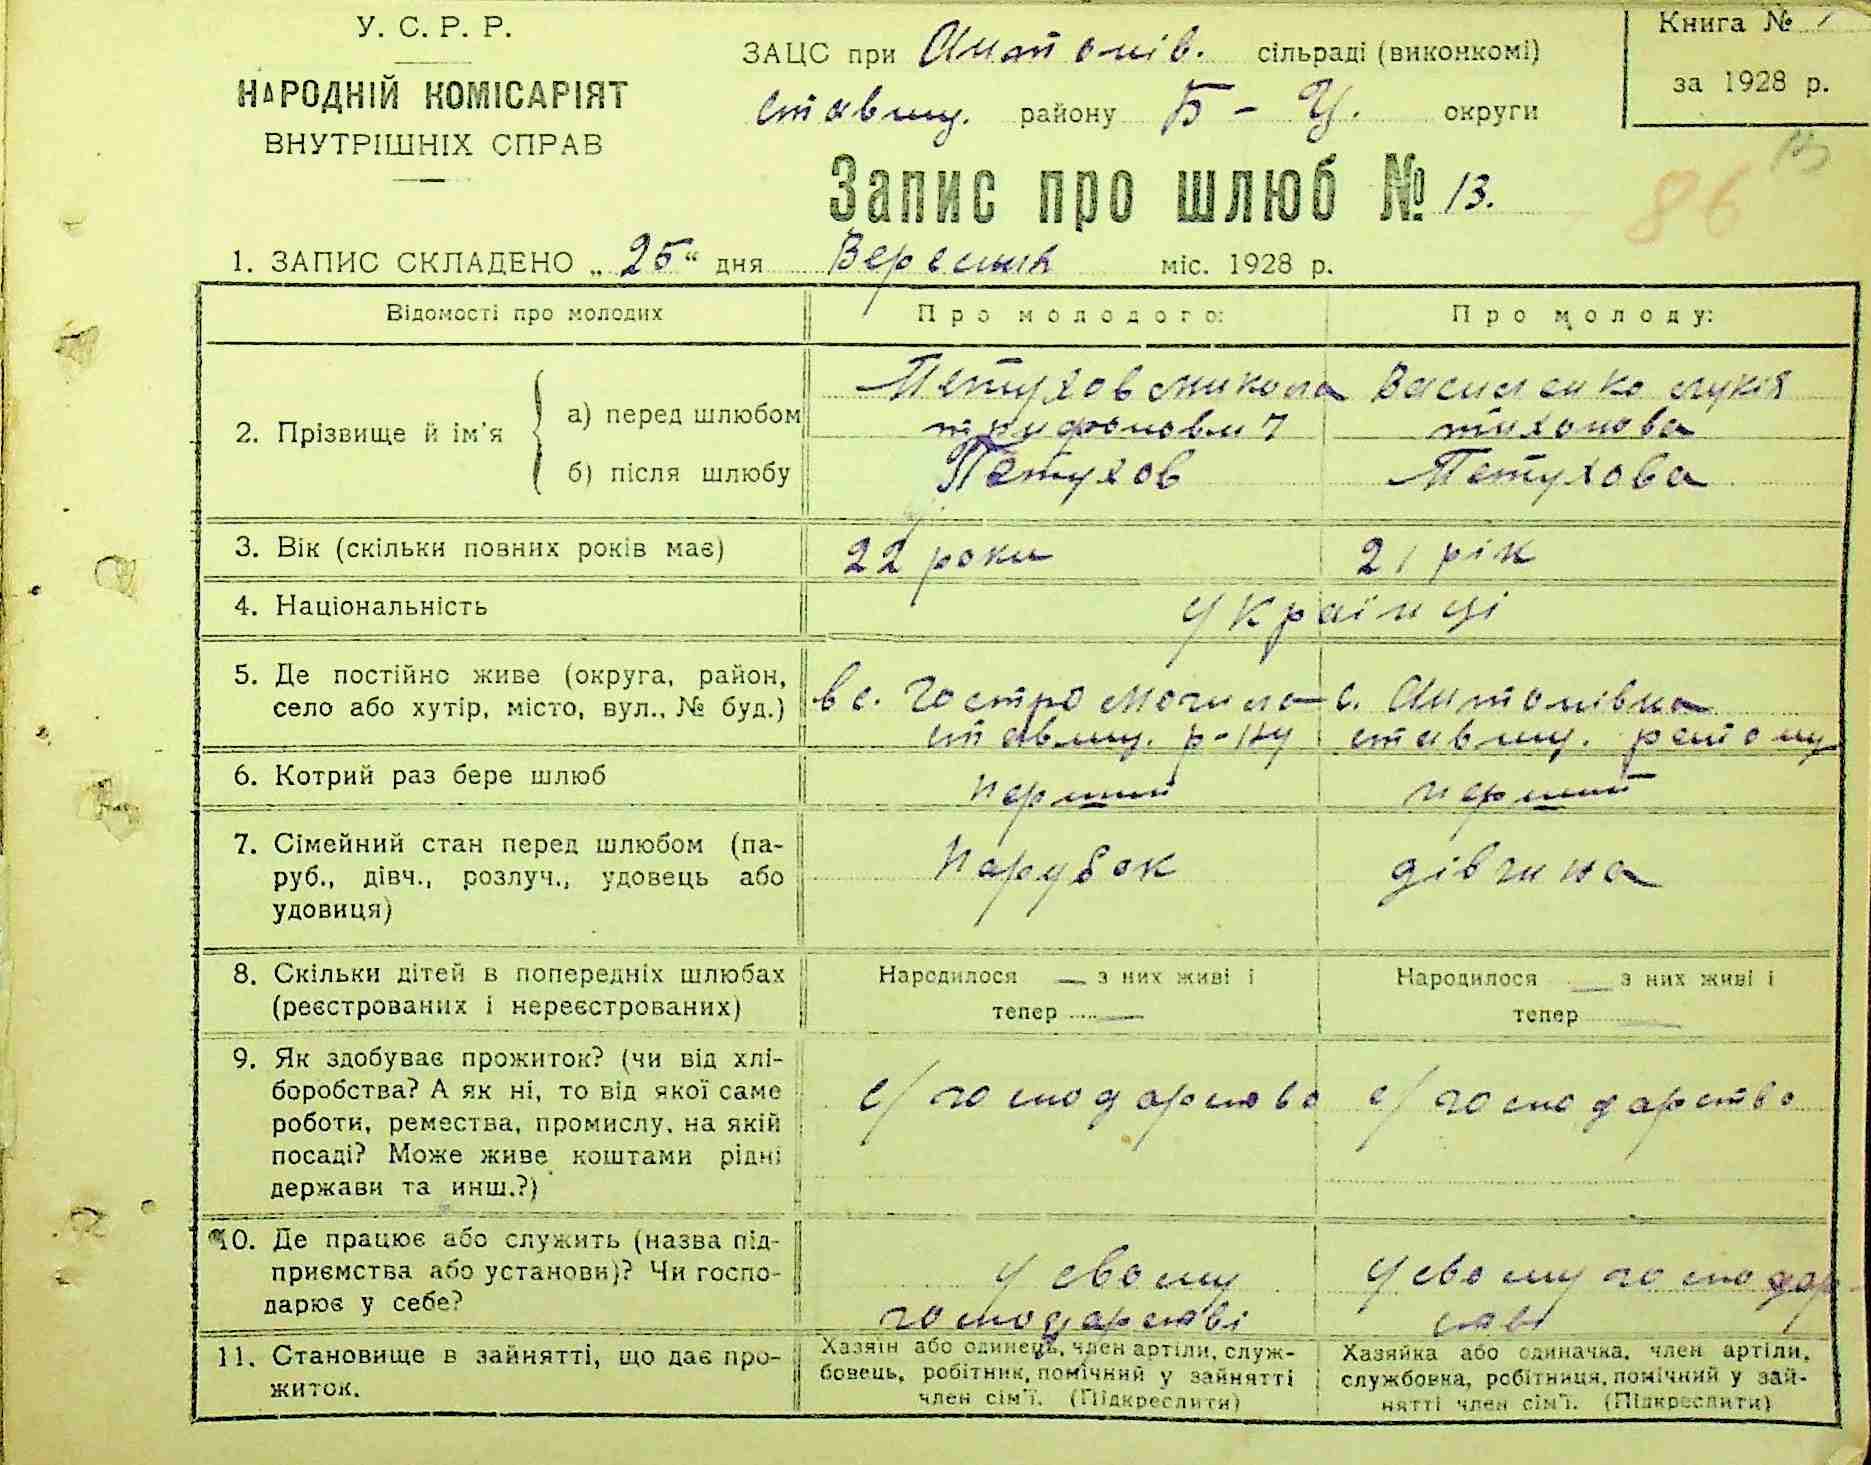 У. С. Р. Р.
НАРОДНІЙ КОМІСАРІЯТ
ВНУТРІШНІХ СПРАВ
ЗАЦС при Антонів. сільраді (виконкомі)
Ставищ. району Б - Ц. округи
Книга №
за 1928 р.
13
86
Запис про шлюб № 13.
1. ЗАПИС СКЛАДЕНО „ 25 “ дня Вересня міс. 1928 р.
Відомості про молодих Про молодого: Про молоду:
2. Прізвище й ім'я а) перед шлюбом Петухов Микола Трифонович Василенко Лукія Тихонова
б) після шлюбу Петухов Петухова
3. Вік (скільки повних років має) 22 роки 21 рік
4. Національність Українці
5. Де постійно живе (округа, район,
село або хутір, місто, вул., № буд.) в с. Гостро Могила с. Антонівка
ставищ. р-ну ставищ. району
6. Котрий раз бере шлюб перший перший
7. Сімейний стан перед шлюбом (па-
руб., дівч., розлуч., удовець або
удовиця) Парубок дівчина
8. Скільки дітей в попередніх шлюбах
(реєстрованих і нереєстрованих)
Народилося — з них живі і
тепер —
Народилося — з них живі і
тепер —
9. Як здобуває прожиток? (чи від хлі-
боробства? А як ні, то від якої саме
роботи, ремества, промислу, на якій
посаді? Може живе коштами рідні
держави та инш.?)
с/господарство с/господарство
10. Де працює або служить (назва під-
приємства або установи)? Чи госпо-
дарює у себе?
у свому
господарстві
у свому господар-
стві
11. Становище в зайнятті, що дає про-
житок.
Хазяїн або одинець, член артіли, служ-
бовець, робітник, помічний у зайнятті
член сім'ї. (Підкреслити)
Хазяйка або одиначка, член артіли,
службовка, робітниця, помічний у зай-
нятті член сім'ї. (Підкреслити)